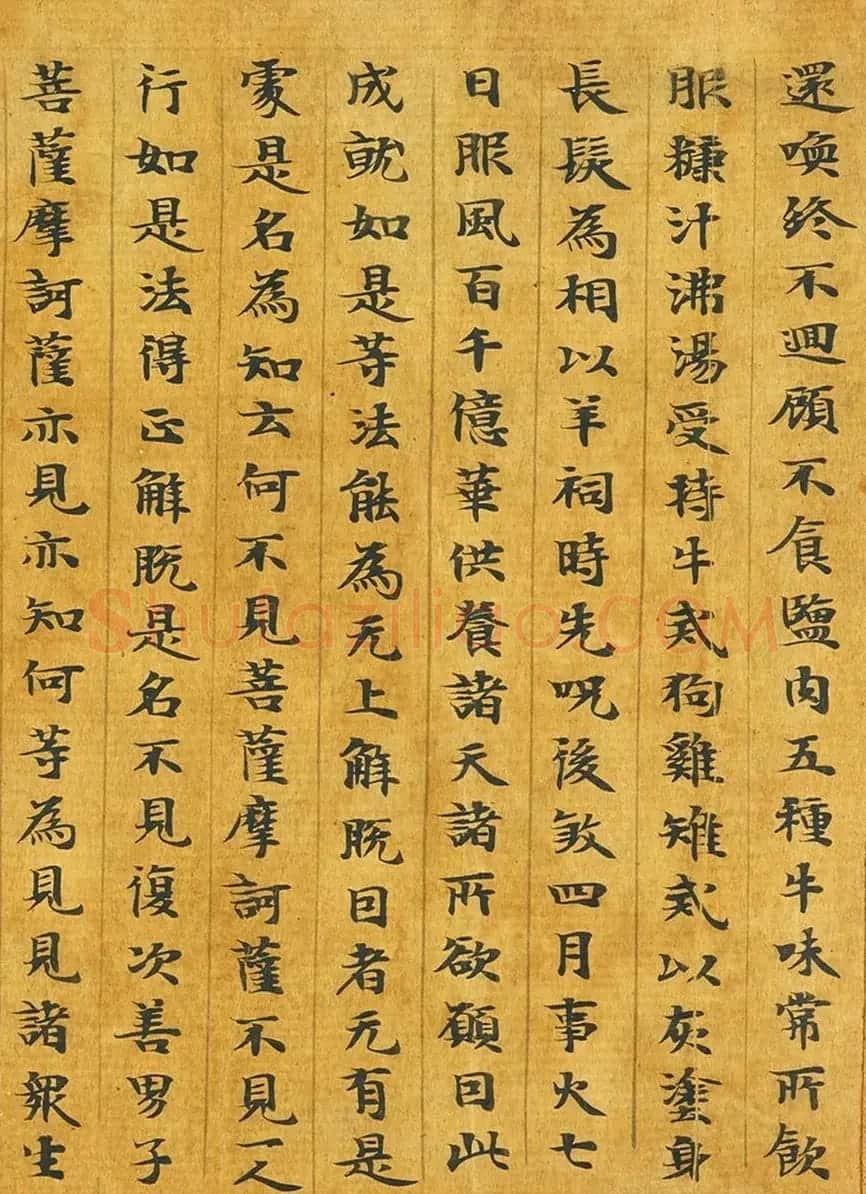 還喚終不迴顧不食鹽肉五種牛味常所飲
服糠汁沸湯受持牛戒狗雞雉戒以灰塗身
長髮為相以羊祠時先呪後煞四月事火七
日服風百千億華供養諸天諸所欲願因此
成就如是等法能為无上解脫因者无有是
處是名為知云何不見菩薩摩訶薩不見一人
行如是法得正解脫是名不見復次善男子
菩薩摩訶薩亦見亦知何等為見見諸眾生
Shufaziliao.COM